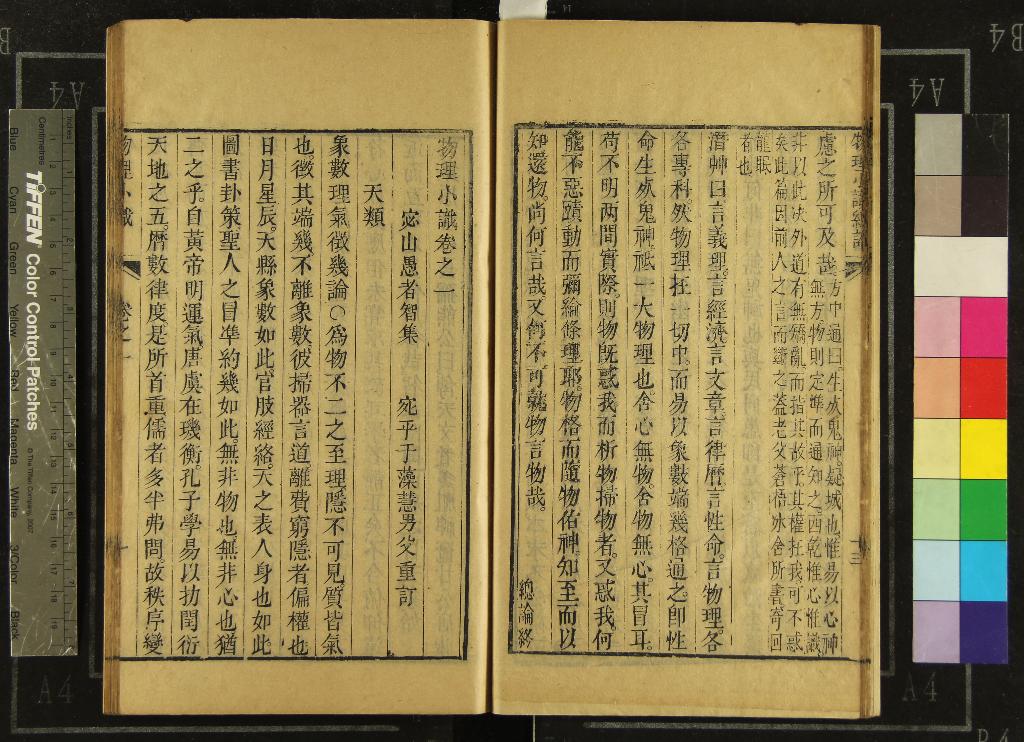 物理小識總論
慮之所可及哉
方中通曰生死鬼神疑城也惟易以心神
無方物則定準而通知之西乾惟心惟識
非以此決外道有無矯亂而指其故乎其權在我可不惑
矣此篇因前人之言而續之蓋老父苍梧冰舍所書寄回
龍眠
者也
潛艸曰言義理言經濟言文章言律曆言性命言物理各
各專科然物理在一切中而易以象數端幾格通之即性
命生死鬼神祗一大物理也舍心無物舍物無心其冒耳
苟不明两間實際則物既惑我而析物掃物者又惑我何
能不惡賾動而彌綸條理耶物格而隨物佑神知至而以
知還物尚何言哉又何不可就物言物哉。
總論終
十三
物理小識卷之一
宓山愚者智集
宛平于藻慧男父重訂
天類
象數理氣徵幾論○為物不二之至理隱不可見質皆氣
也徵其端幾不離象數彼掃器言道離費窮隱者偏權也
日月星辰天縣象數如此官肢經絡天之表人身也如此
圖書卦策聖人之冒準約幾如此無非物也無非心也猶
二之乎自黃帝明運氣唐虞在璣衡孔子學易以扐閏衍
天地之五曆數律度是所首重儒者多半弗問故秩序變
物理小識
卷之一
一
Inches
Centimetres
TIFFEN Color Control Patches
© The Tiffen Company, 2007
Blue
Cyan
Green
Yellow
Red
Magenta
White
3/Color
Black
A4
A4
A4
A4
B4
B